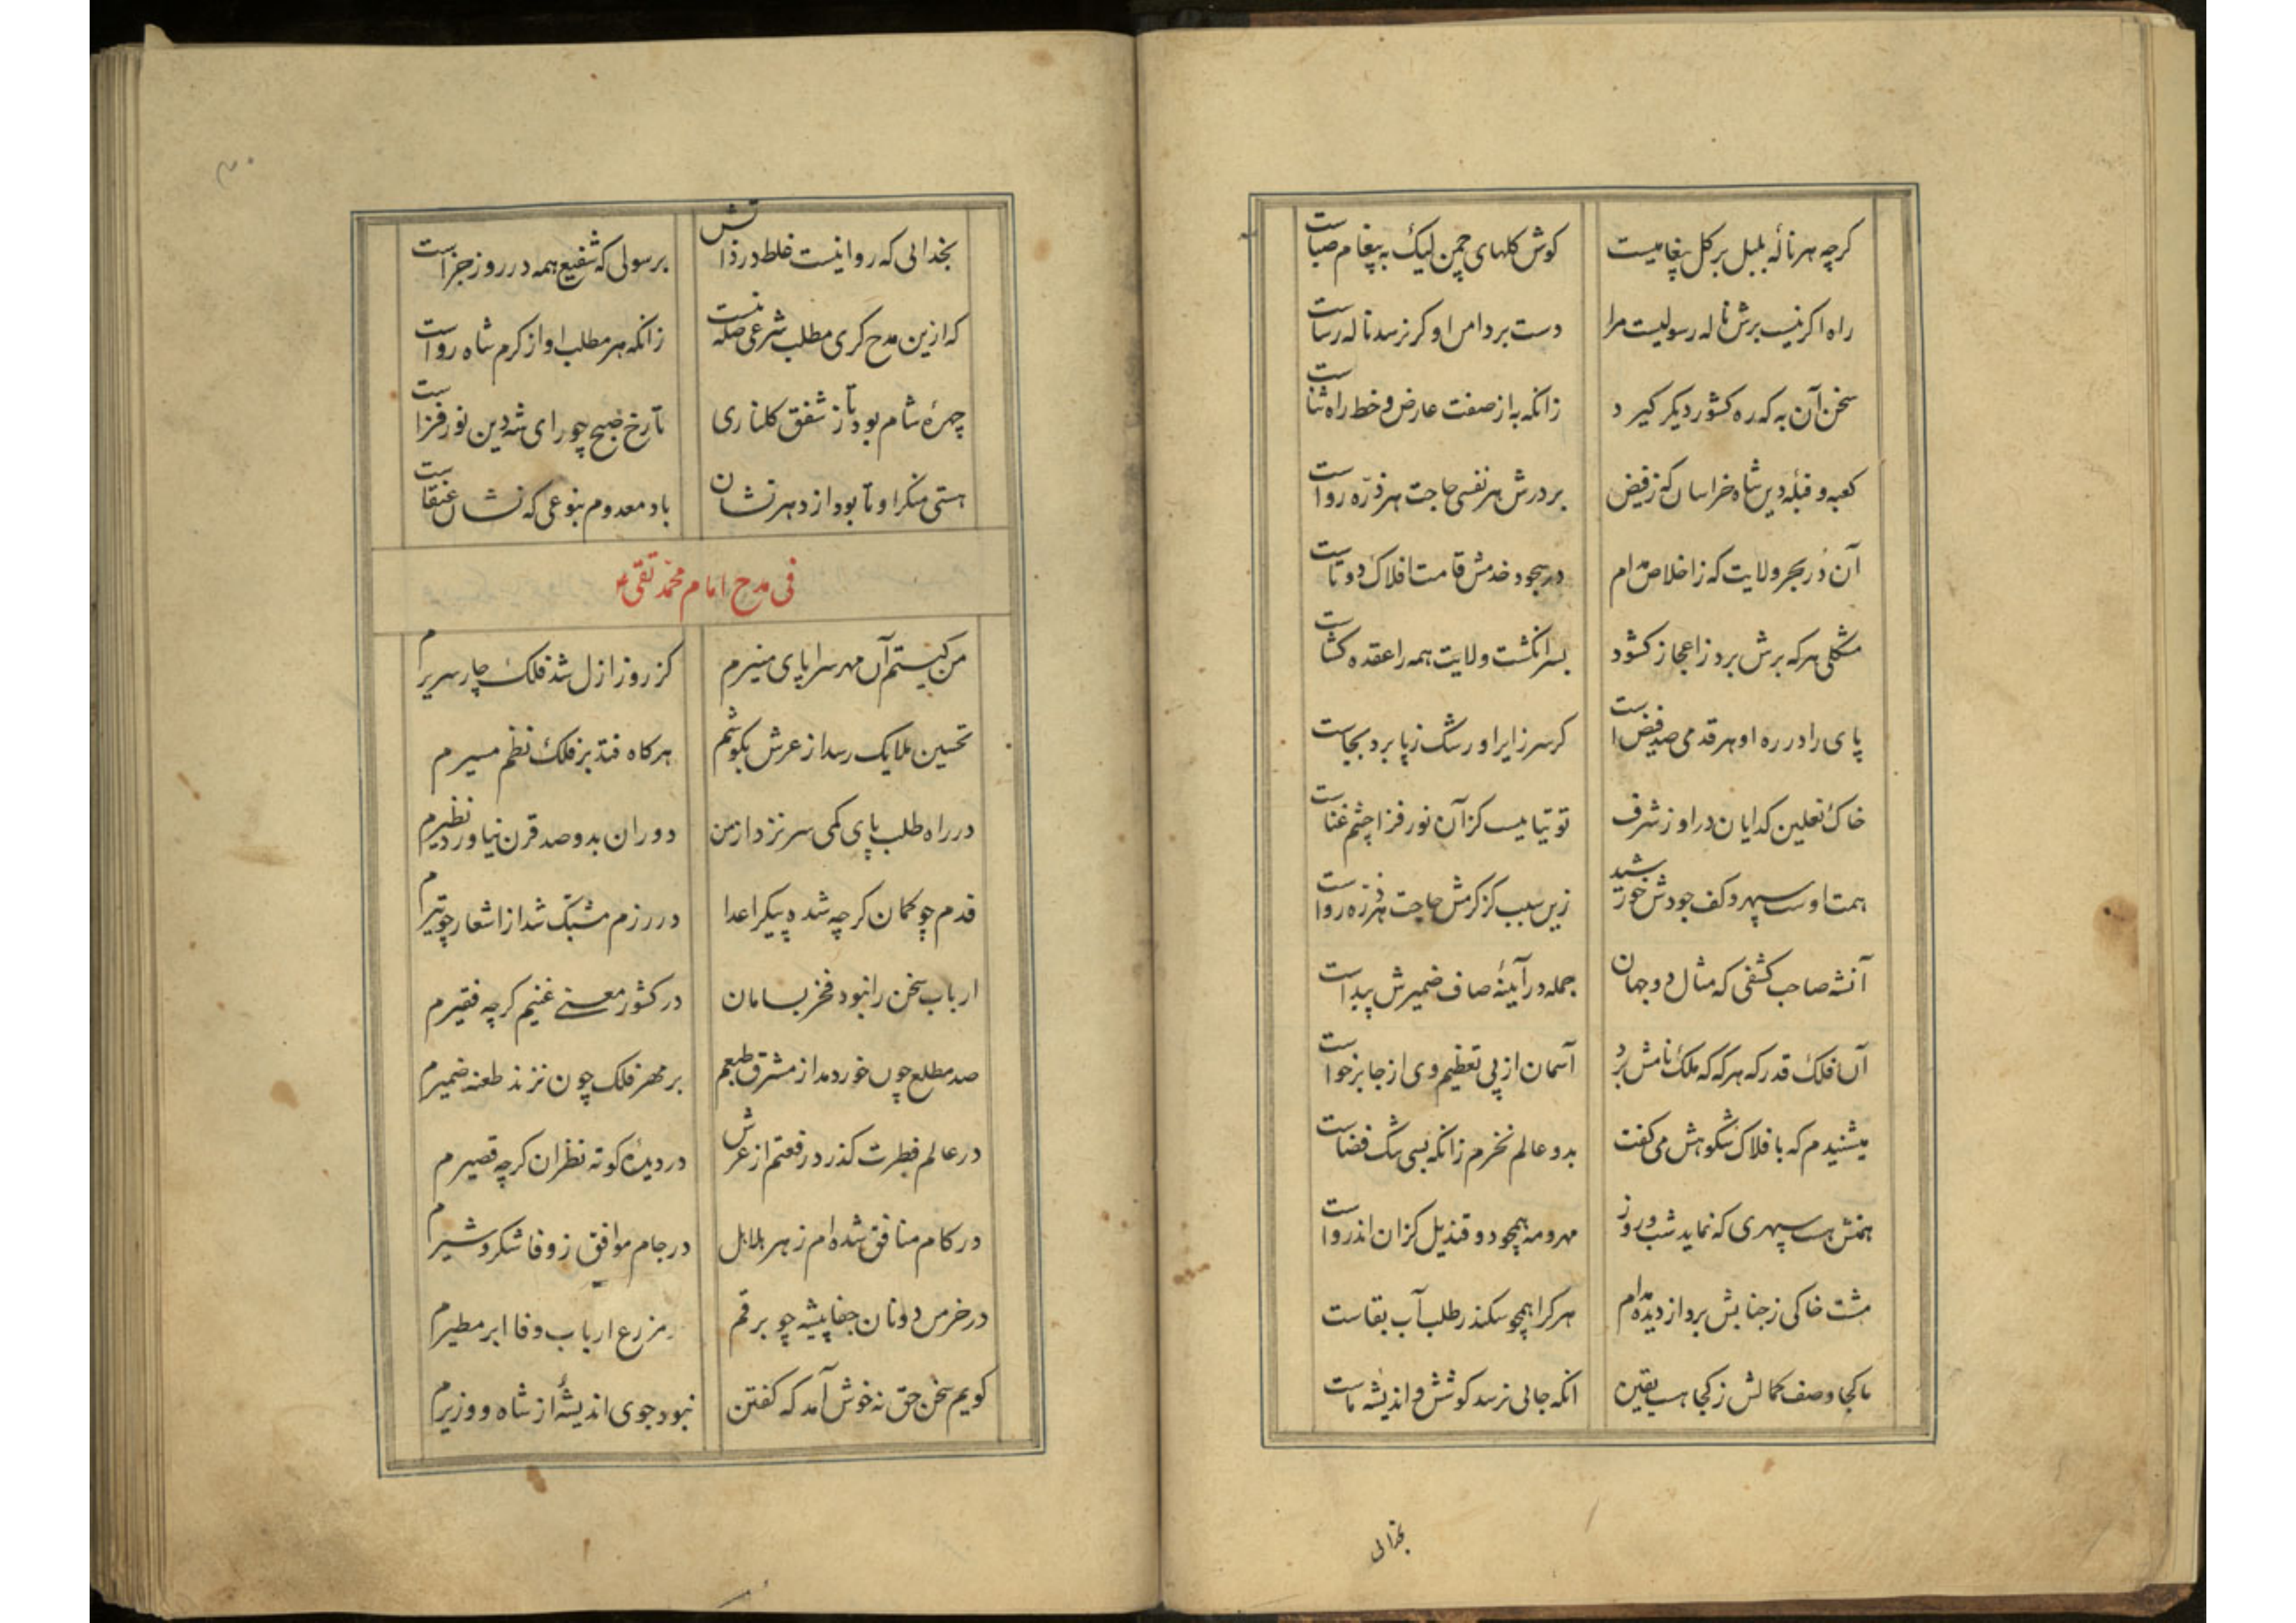 کرچه هر نالهٔ بلبل بر کل پیغامیست کوش کلهای چمن لیک به پیغام صباست
راه اکر نیست برش ناله رسولیست مرا دست بر دامن او کر نرسد ناله رساست
سخن آن به که ره کشور دیکر کیرد زانکه به از صفت عارض و خط راه ثناست
کعبه و قبلهٔ دین شاه خراسان که ز فیض بر درش هر نفسی حاجت هر ذرّه رواست
آن دُر بحر ولایت که ز اخلاص مدام در سجود خدمش قامت افلاک دوتاست
مشکلی هر که برش برد ز اعجاز کشود بسر انکشت ولایت همه را عقده کشاست
پای را در ره او هر قدمی صد فیض است کر سر زایر او رشک ز پا برد بجاست
خاک نعلین کدایان در او ز شرف توتیاییست کز آن نور فزا چشم غناست
همت اوست سپهر و کف جودش خورشید زین سبب کز کرمش حاجت هر ذرّه رواست
آنشه صاحب کشفی که مثال دو جهان جمله در آینهٔ صاف ضمیرش پیداست
آن فلک قدر که هر که که ملک نامش برد آسمان از پی تعظیم وی از جا برخواست
میشنیدم که با فلاک شکوهش می کفت بدو عالم نخرم زانکه بسی تنک فضاست
همتش هست سپهری که نماید شب و روز مهر و مه همچو دو قندیل کزان اندرواست
مشت خاکی ز جنابش برد از دیده مدام هر کرا همچو سکندر طلب آب بقاست
ما کجا وصف کمالش ز کجا هست یقین انکه جایی نرسد کوشش و اندیشه ماست
بخدائی
بخدائی که روا نیست غلط در ذاتش برسولی که شفیع همه در روز جزاست
که ازین مدح کری مطلب شرعی صله نیست زانکه هر مطلب او از کرم شاه رواست
چهرهٔ شام بود تا ز شفق کلناری تا رخ صبح چو رای شه دین نور فزاست
هستی منکر او تا بود از دهر نشان باد معدوم بنوعی که نشان عنقاست
فی مدح امام محمّد تقی ع
من کیستم آن مهر سراپای منیرم کز روز ازل شد فلک چار سریرم
تحسین ملایک رسد از عرش بکوشم هرکاه فتد بر فلک نظم مسیرم
در راه طلب پای کمی سر نزد از من دوران بدو صد قرن نیاورد نظیرم
قدم چو کمان کرچه شده پیکر اعدا در رزم مشبّک شد از اشعار چو تیرم
ارباب سخن را نبود فخر بسامان در کشور معنی غنیم کرچه فقیرم
صد مطلع چون خور دمد از مشرق طبعم بر مهر فلک چون نزند طعنه ضمیرم
در عالم فطرت کذرد رفعتم از عرش در دیدهٔ کوته نظران کرچه قصیرم
در کام منافق شده ام زهر هلاهل در جام موافق ز وفا شکر و شیرم
در خرمن دونان جفاپیشه چو برقم در مزرع ارباب وفا ابر مطیرم
کویم سخن حق نه خوش آمد که کفتن نبود جوی اندیشهٔ از شاه و وزیرم